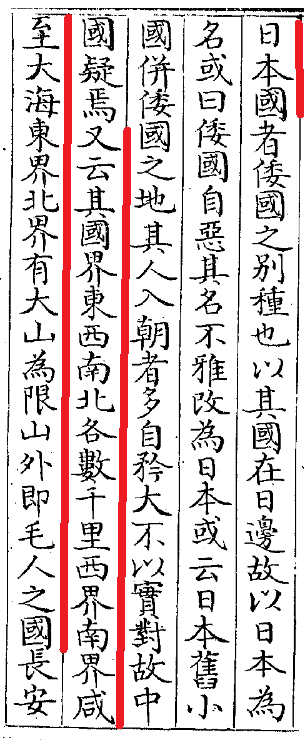 日本國者倭國之別種也以其國在日邊故以日本為
名或曰倭國自惡其名不雅改為日本或云日本舊小
國併倭國之地其人入朝者多自矜大不以實對故中
國疑焉又云其國界東西南北各數千里西界南界咸
至大海東界北界有大山為限山外即毛人之國長安